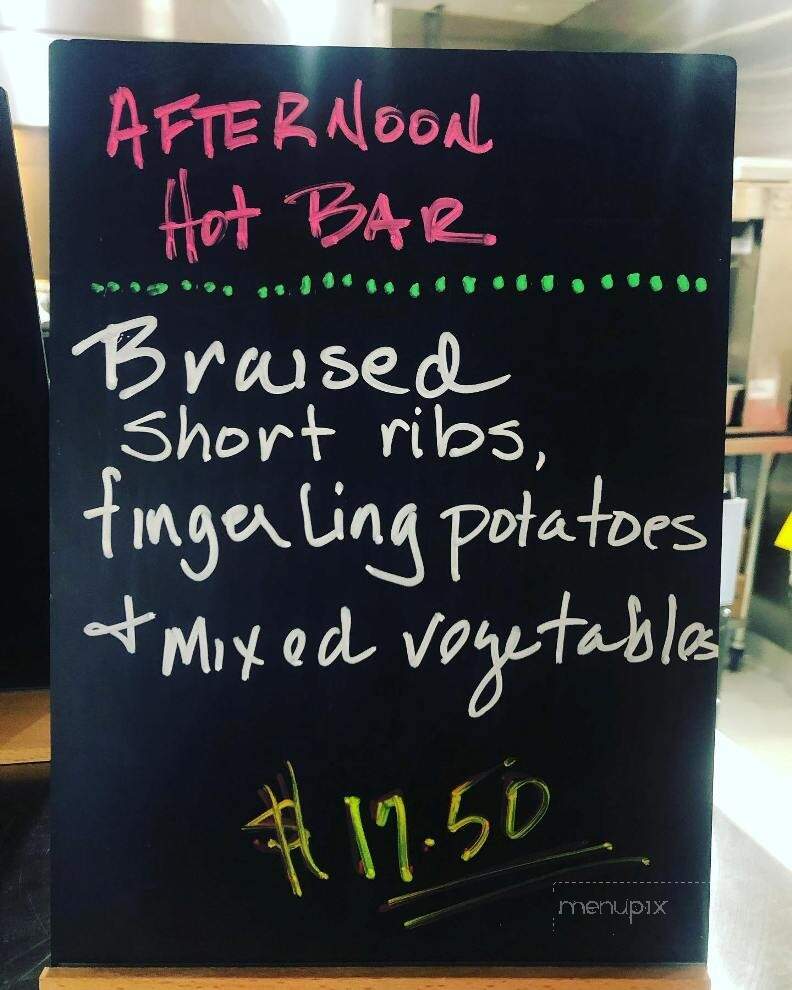 AFTERNOON
Hot BAR
Braised
short ribs,
fingerling potatoes
+ Mixed vegetables
$17.50
menupix